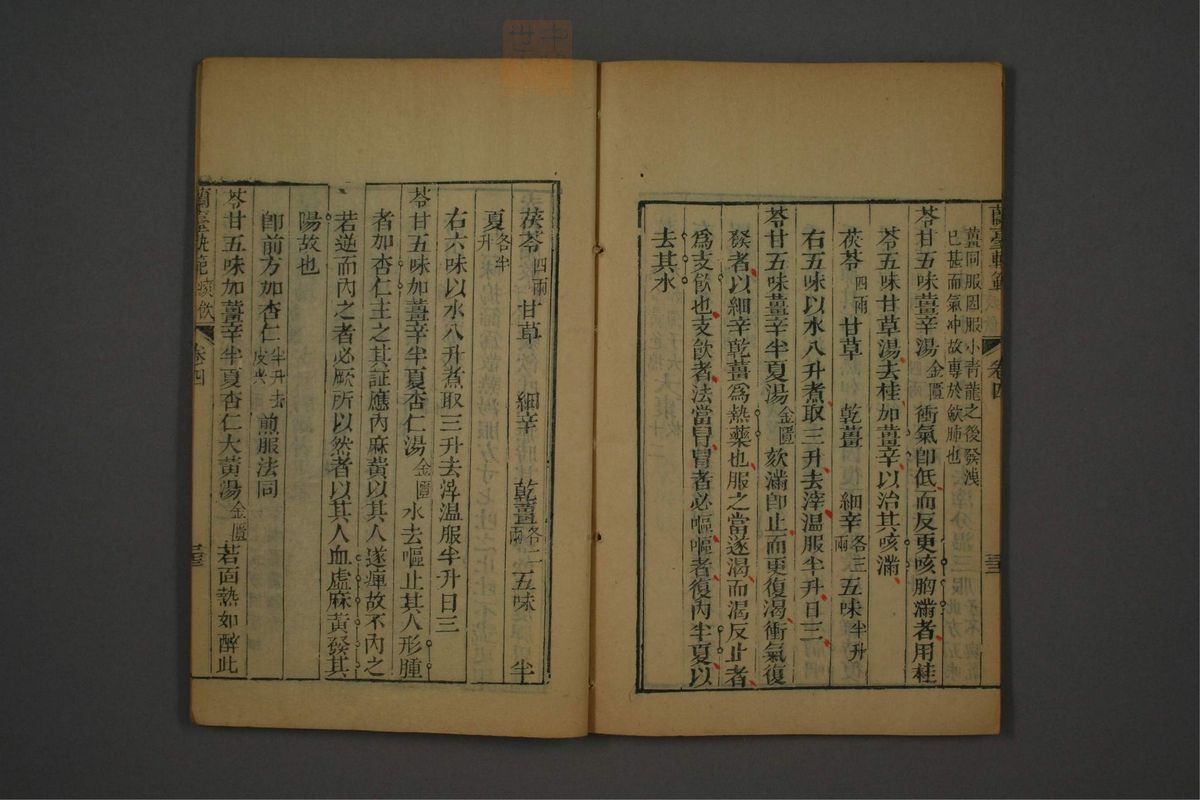 蘭臺軌範 卷四 三三
薑同服因服小青龍之後發洩
已甚而氣冲故專於歛肺也
苓甘五味薑辛湯金匱 衝氣卽低而反更咳胸滿者用桂
苓五味甘草湯去桂加薑辛以治其咳滿
茯苓四兩 甘草 乾薑 細辛各三兩 五味半升
右五味以水八升煮取三升去滓溫服半升日三
苓甘五味薑辛半夏湯金匱 欬滿卽止而更復渴衝氣復
發者以細辛乾薑爲熱藥也服之當遂渴而渴反止者
爲支飲也支飲者法當冒冒者必嘔嘔者復內半夏以
去其水
茯苓四兩 甘草 細辛 乾薑各二兩 五味 半
夏各半升
右六味以水八升煮取三升去滓溫服半升日三
苓甘五味加薑辛半夏杏仁湯金匱 水去嘔止其人形腫
者加杏仁主之其証應內麻黃以其人遂痺故不內之
若逆而內之者必厥所以然者以其人血虛麻黃發其
陽故也
卽前方加杏仁半升去皮尖 煎服法同
苓甘五味加薑辛半夏杏仁大黃湯金匱 若面熱如醉此
蘭臺軌範 痰飲 卷四 三三